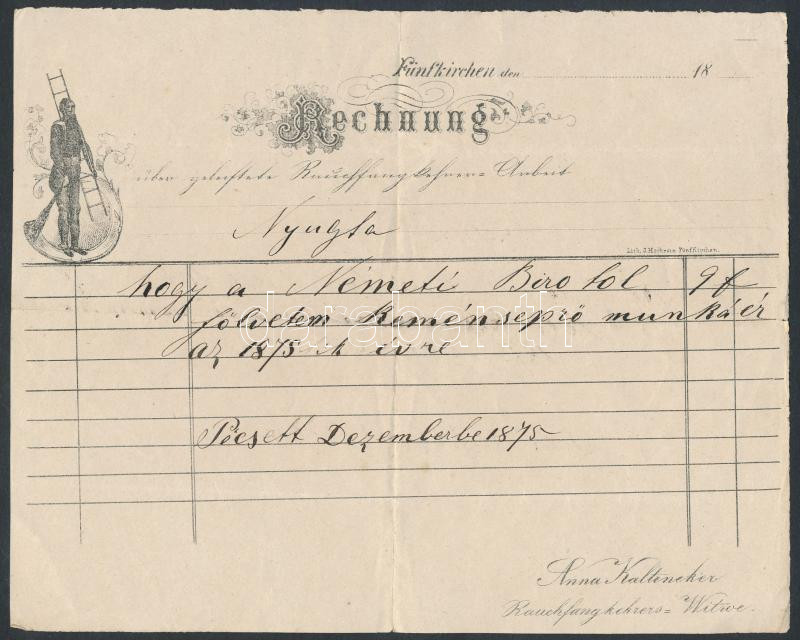 Fünfkirchen den 18
Rechnung
über geleistete Rauchfangkehrer=Arbeit
Nyugta
Lith. J. Hochrein Fünfkirchen.
hogy a Németi Biro tol 9 f
fölvetem Keménseprö munkáér
az 1875 k ivre
Pécsett Dezemberbe 1875
darabanth
Anna Kalteneker
Rauchfangkehrers=Witwe.